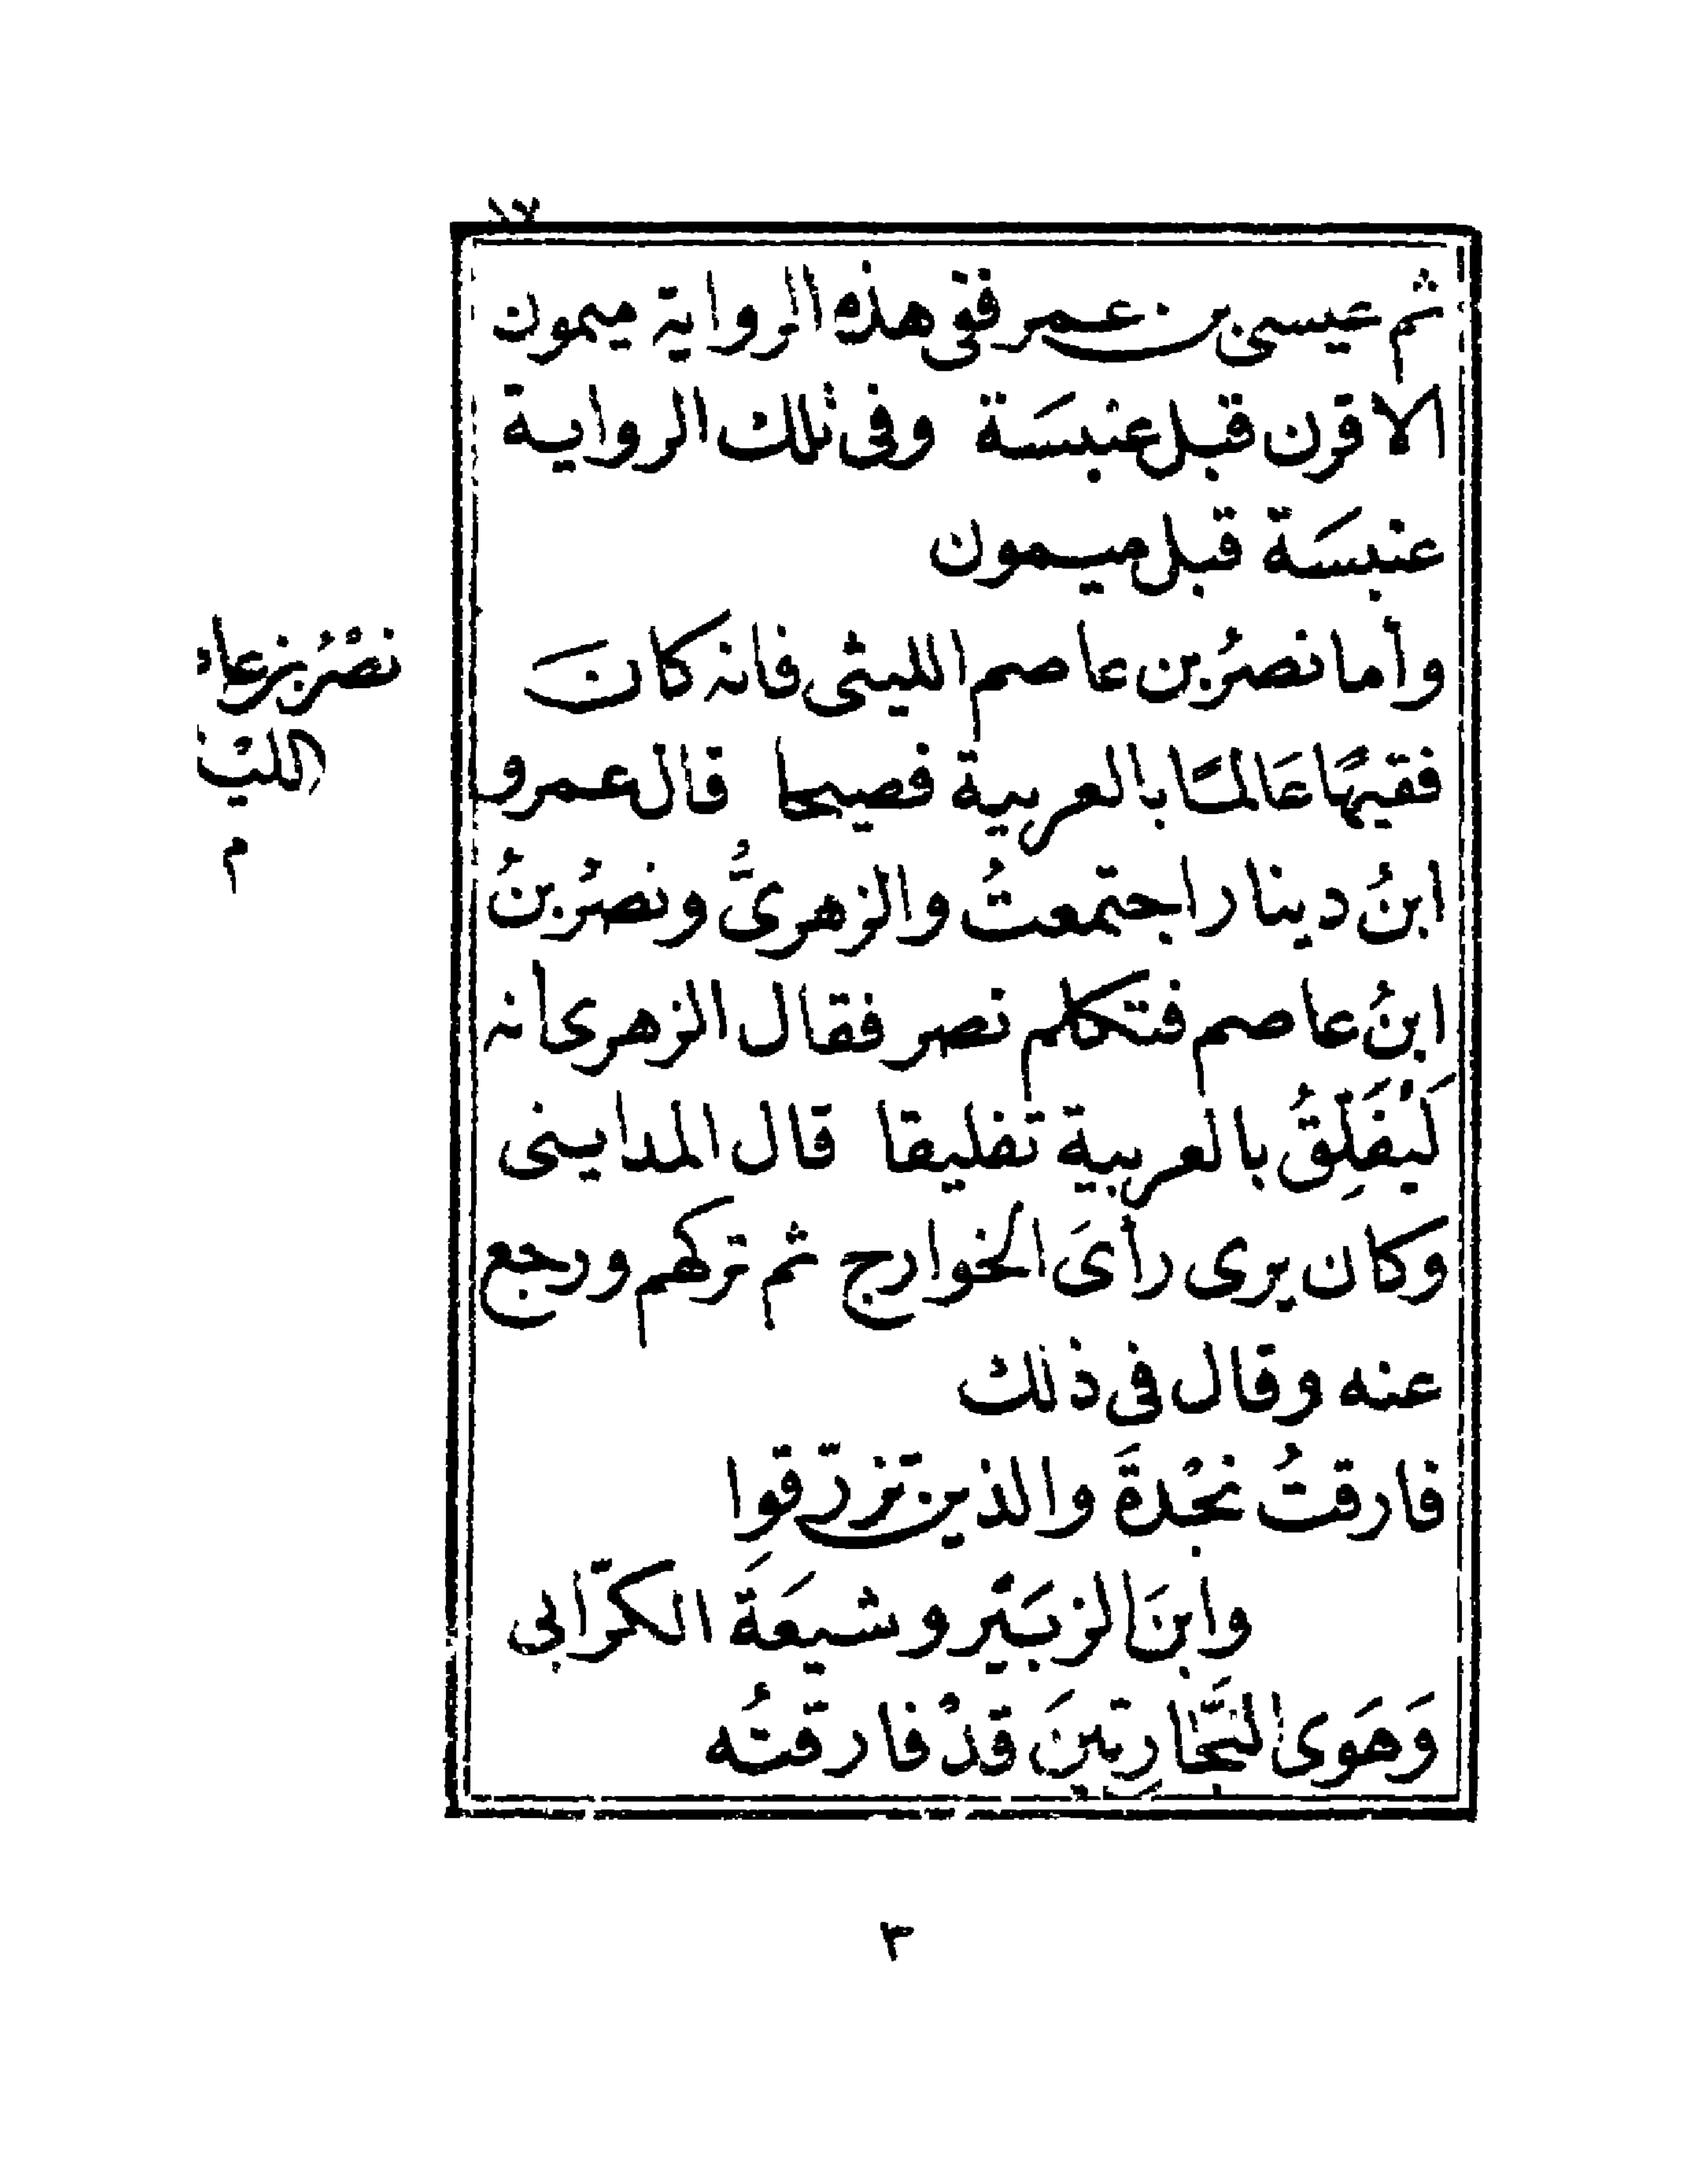 ١٧
ثم عيسى بن عمر ففى هذه الرواية ميمون
الاقرن قبل عنبسَة وفى تلك الرواية
عنبسَة قبل ميمون
وأما نصرُ بن عاصم الليثى فانه كانَ
فقيهًا عَالمًا بالعربية فصيحا قال عمرو
ابنُ دينار اجتمعتُ والزهرىُّ ونصرُ بنُ
ابنُ عاصم فتكلم نصر فقال الزهرى انه
لَيُفَلِّقُ بالعربية تفليقا قال المداينى
وكان يرى رأىَ الخوارج ثم تركهم ورجع
عنه وقال فى ذلك
فارقتُ نجْدةَ والذين تزرّقوا
وابنَ الزبَيْر وشيعَةَ الكرّابى
وَهَوى النَّجّارِيّينَ قدْ فارقتُه
نصْرُ بن عا
الليث
م
٣